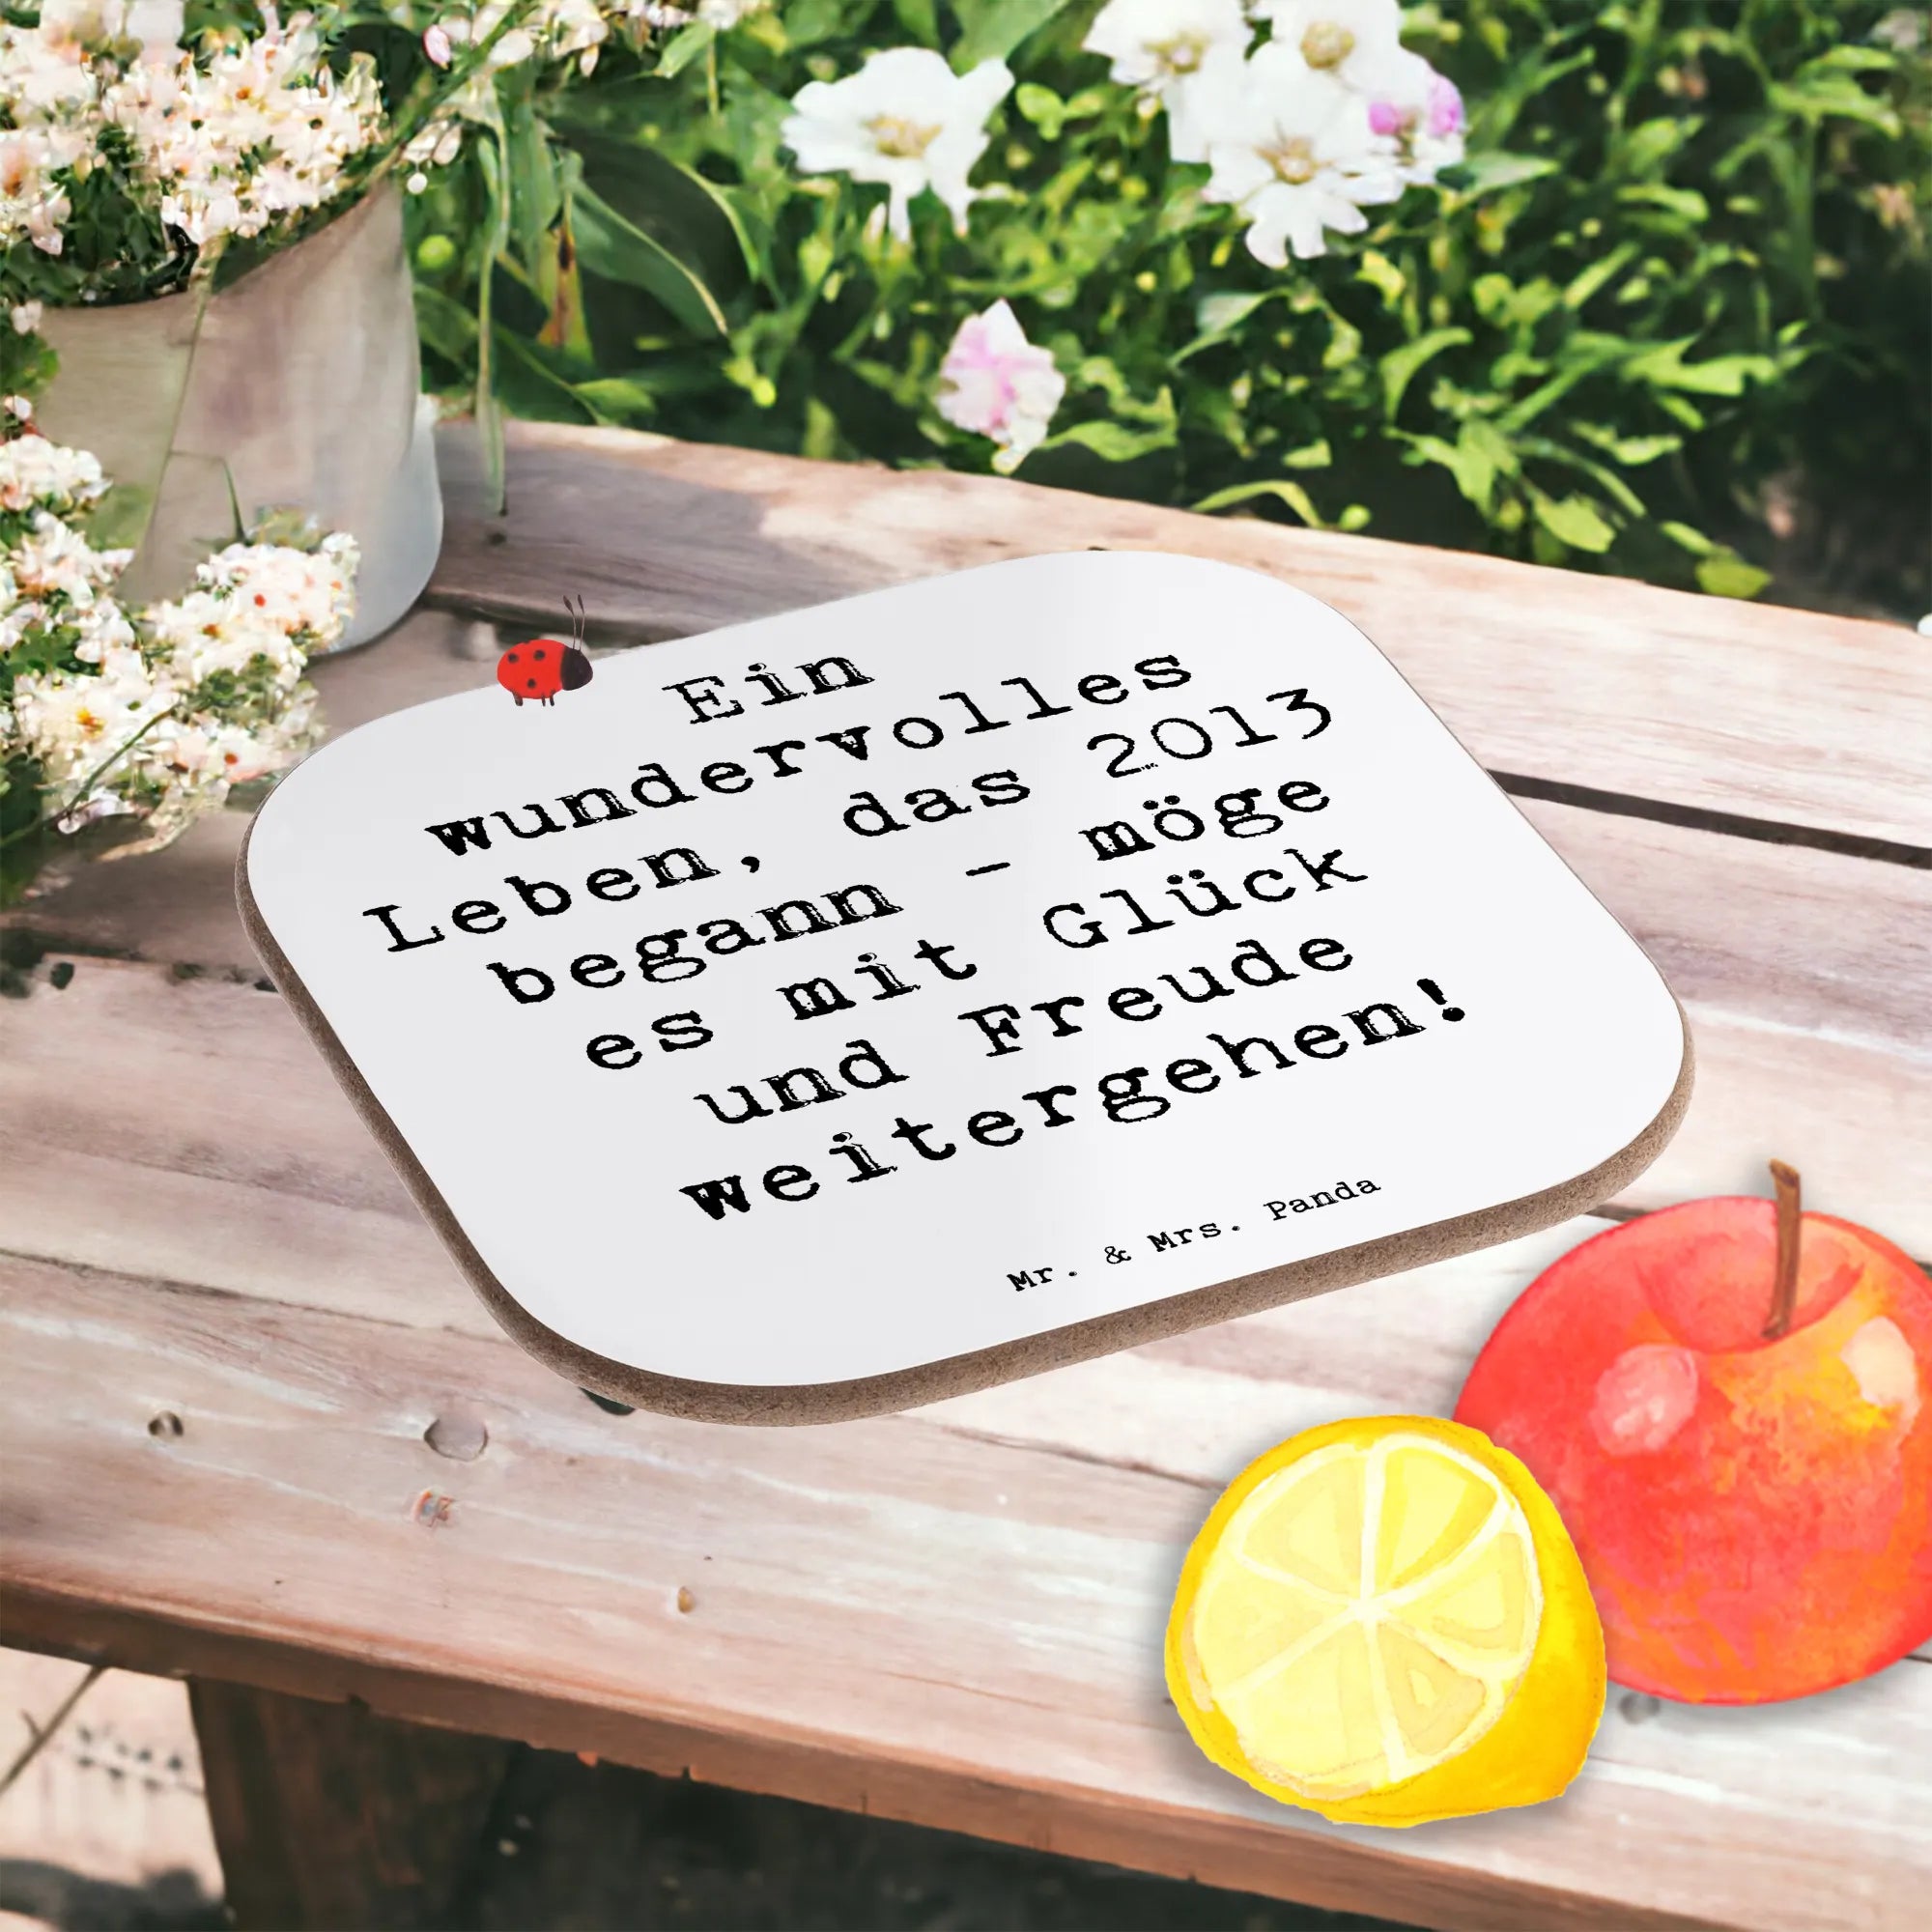 Ein
wundervolles
Leben, das 2013
begann - möge
es mit Glück
und Freude
weitergehen!
Mr. & Mrs. Panda